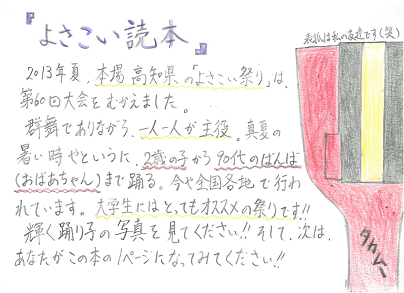 『よさこい読本』
表紙は私の友達です(笑)
2013年夏、本場高知県の「よさこい祭り」は、
第60回大会をむかえました。
群舞でありながら、一人一人が主役。真夏の
暑い時やというに、2歳の子から90代のばんば
(おばあちゃん)まで踊る。今や全国各地で行わ
れています。大学生にはとってもオススメの祭りです!!
輝く踊り子の写真を見てください!!そして、次は、
あなたがこの本の1ページになってみてください!!